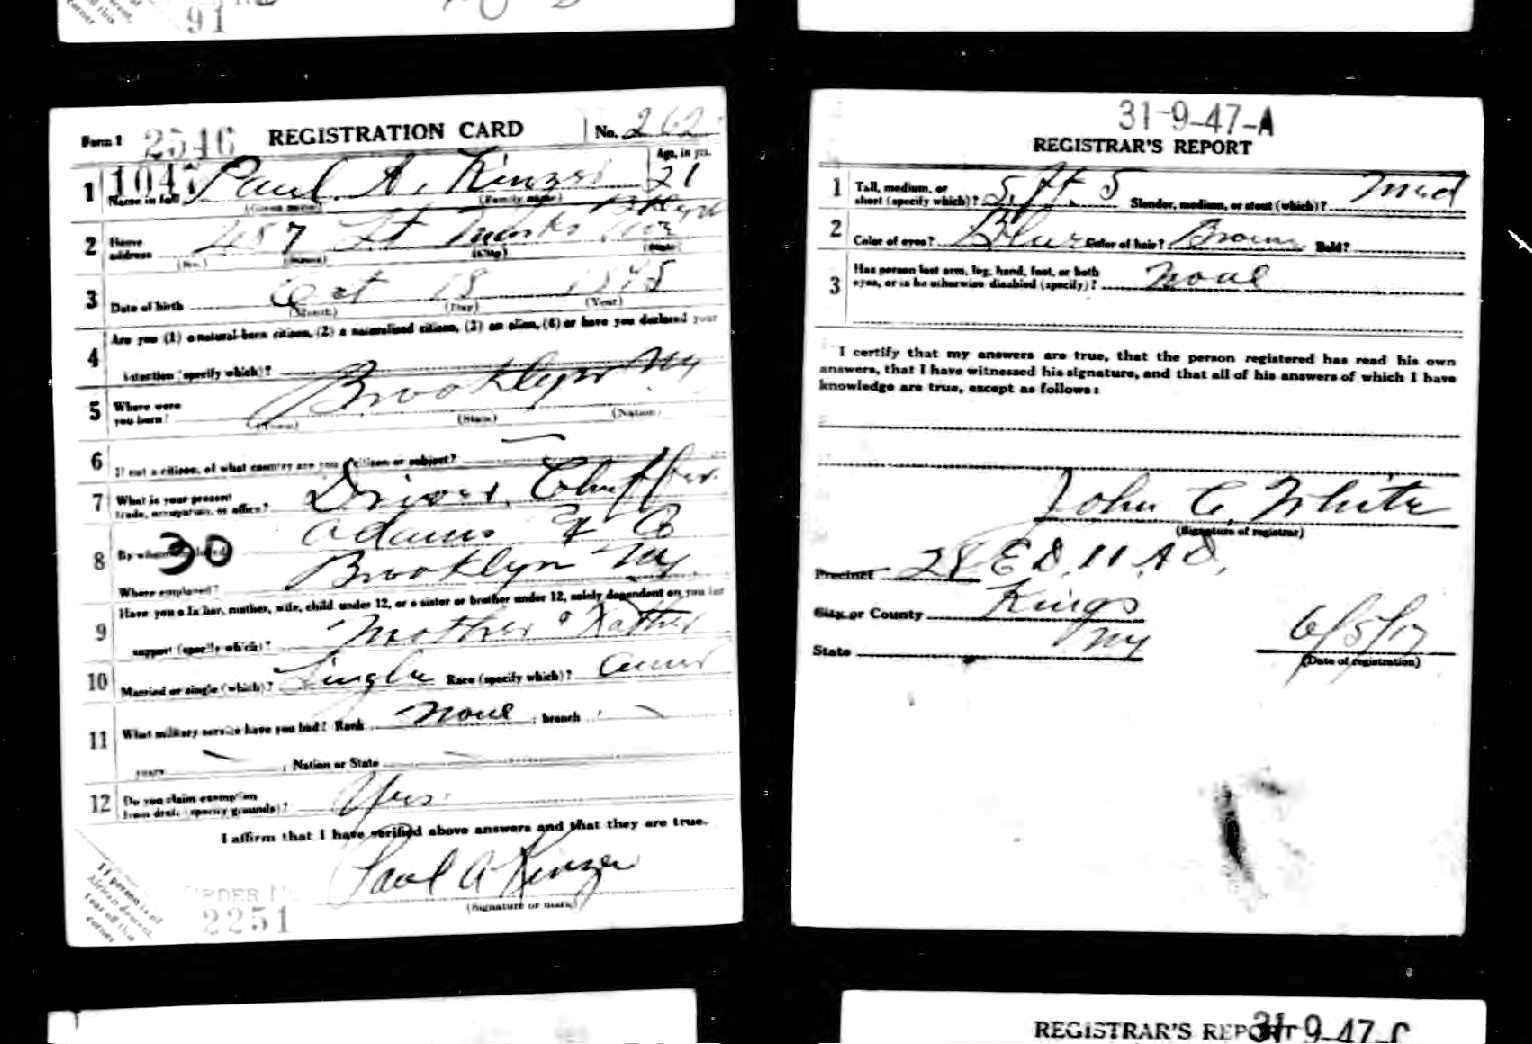 91
Form 1 2546 REGISTRATION CARD No. 262
Age, in yrs.
1 1047 Paul A. Kinzer 21
Name in full
(Given name) (Family name)
Bklyn
2 Home address 457 St Marks Ave
(No.) (Street) (City) (State)
3 Date of birth Oct 18 1895
(Month) (Day) (Year)
4 Are you (1) a natural-born citizen, (2) a naturalized citizen, (3) an alien, (4) or have you declared your
intention (specify which)?
5 Where were you born? Brooklyn NY
(Town) (State) (Nation)
6 If not a citizen, of what country are you a citizen or subject?
7 What is your present trade, occupation, or office? Driver
8 By whom employed? Adams & Co
30
Where employed? Brooklyn NY
9 Have you a father, mother, wife, child under 12, or a sister or brother under 12, solely dependent on you for
support (specify which)? Mother & Father
10 Married or single (which)? Single Race (specify which)?
11 What military service have you had? Rank None ; branch
years ; Nation or State
12 Do you claim exemption from draft (specify grounds)? Yes
I affirm that I have verified above answers and that they are true.
Paul A Kinzer
(Signature or mark)
If person is of African descent, tear off this corner
ORDER N
2251
31-9-47-A
REGISTRAR'S REPORT
1 Tall, medium, or short (specify which)? 5 ft 5 Slender, medium, or stout (which)? Med
2 Color of eyes? Blue Color of hair? Brown Bald?
3 Has person lost arm, leg, hand, foot, or both eyes, or is he otherwise disabled (specify)? None
I certify that my answers are true, that the person registered has read his own
answers, that I have witnessed his signature, and that all of his answers of which I have
knowledge are true, except as follows:
John C. White
(Signature of registrar)
Precinct 28 E.D. 11 A.D.
City or County Kings
State NY
6/5/17
(Date of registration)
REGISTRAR'S REPORT 31-9-47-C